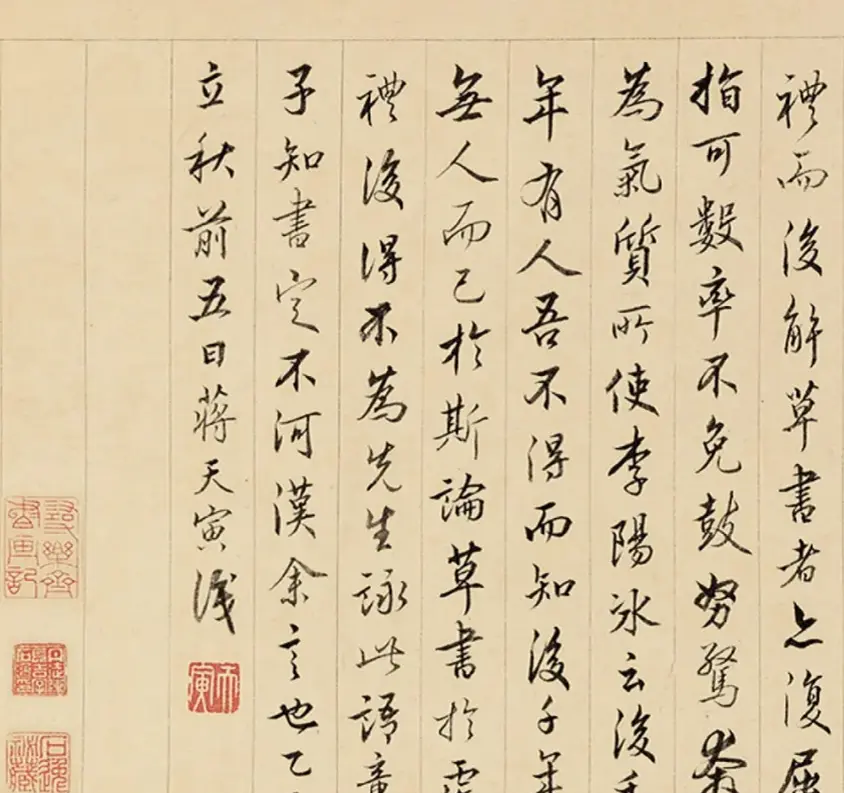 禮而後解草書者亦復屈
指可數率不免鼓努驁奔
為氣質所使李陽冰云後千
年有人吾不得而知後千年
無人而已於斯論草書於虛
禮後得不為先生詠此語童
子知書定不河漢余言也乙
立秋前五日蔣天寅識
天寅